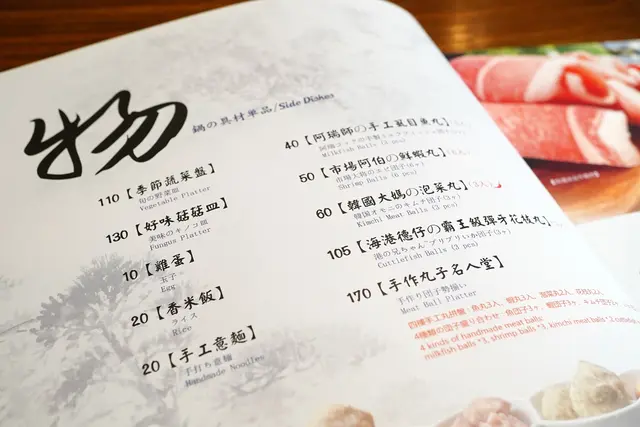 物
鍋の具材單品/Side Dishes
110【季節蔬菜盤】
旬の野菜皿
Vegetable Platter
130【好味菇菇皿】
美味のキノコ皿
Fungus Platter
10【雞蛋】
玉子
Egg
20【香米飯】
ライス
Rice
20【手工意麵】
手打ち意麺
Handmade Noodles
40【阿瑞師の手工虱目魚丸】
Milkfish Balls (2 pcs)
50【市場阿伯の鮮蝦丸】
Shrimp Balls (6 pcs)
60【韓國大媽の泡菜丸】
韓国オモニのキムチ団子(3ヶ)
Kimchi Meat Balls (3 pcs)
105【海港德仔の霸王級彈牙花枝丸】
港の兄ちゃん"プリプリいか団子(3ヶ)
Cuttlefish Balls (3 pcs)
170【手作丸子名人堂】
手作り団子勢揃い
Meat Ball Platter
4 kinds of handmade meat balls
milkfish balls *3, shrimp balls *3, kimchi meat balls